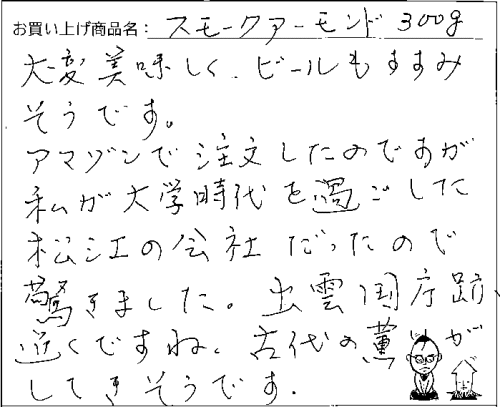 お買い上げ商品名： スモークアーモンド 300g
大変美味しく、ビールもすすみ
そうです。
アマゾンで注文したのですが
私が大学時代を過ごした
松江の会社だったので
驚きました。出雲国庁跡、
近くですね、古代の薫りが
してきそうです.